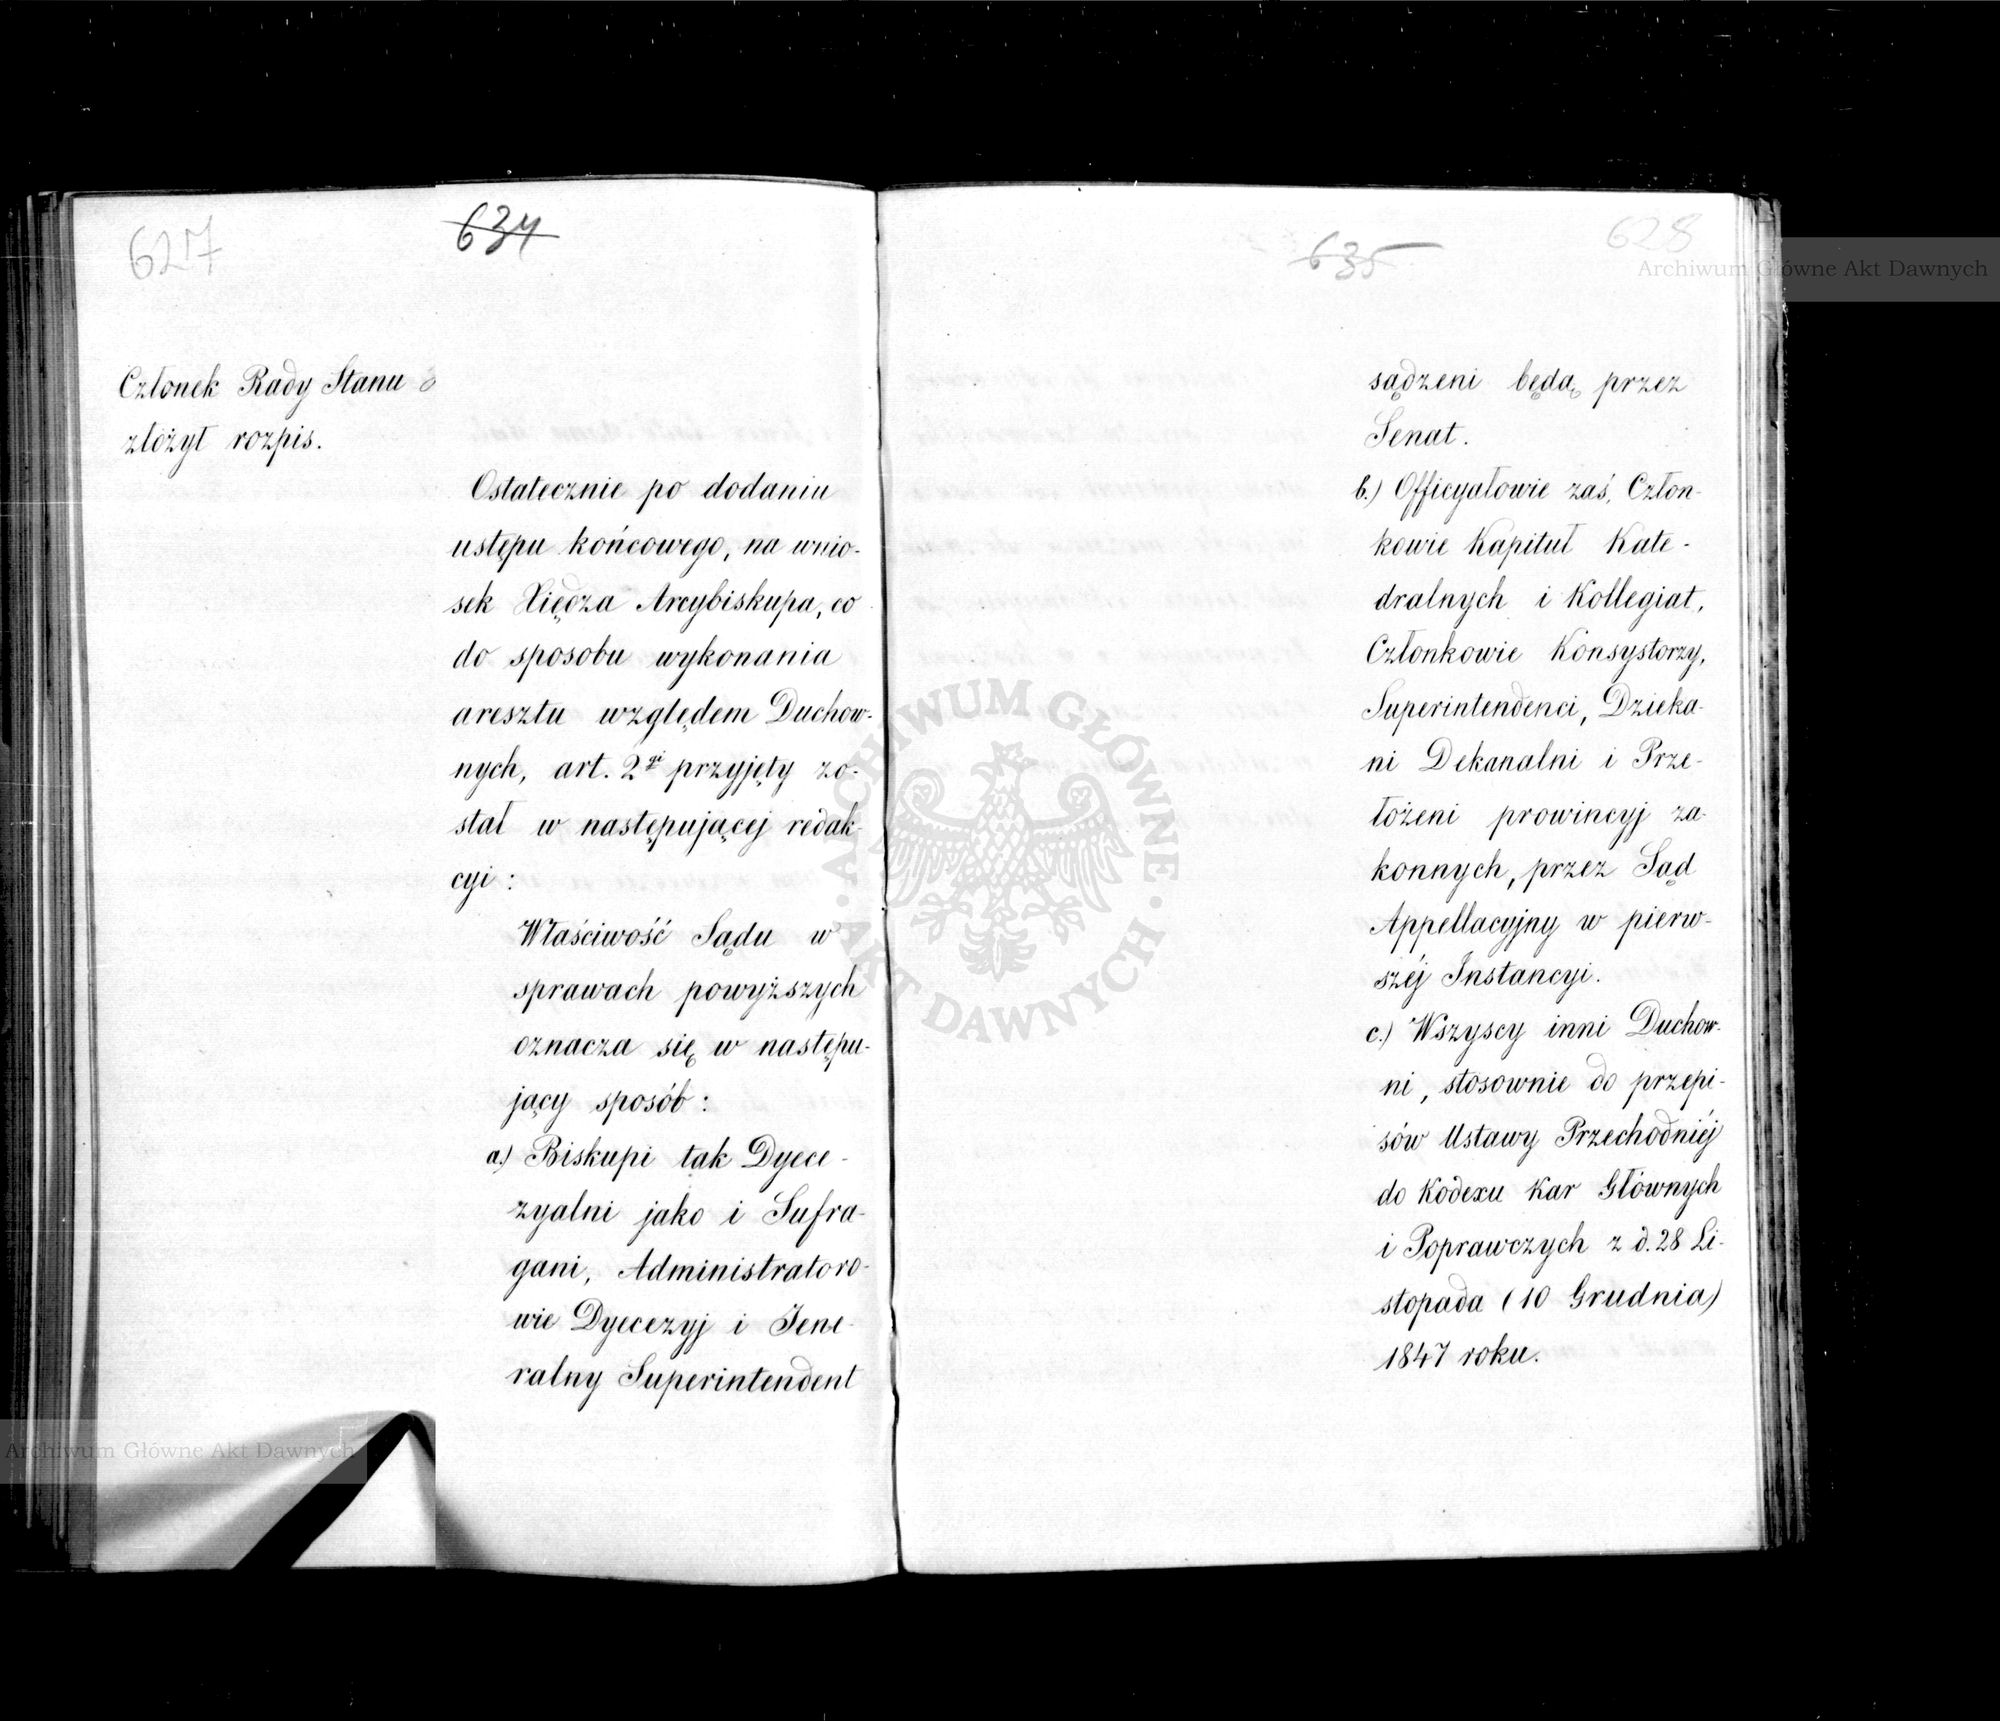 627
634
Członek Rady Stanu
złożył rozpis.
Ostatecznie po dodaniu
ustępu końcowego, na wnio-
sek Xiędza Arcybiskupa, co
do sposobu wykonania
aresztu względem Duchow-
nych, art. 2gi przyjęty zo-
stał w następującej redak-
cyi:
Właściwość Sądu w
sprawach powyższych
oznacza się w następu-
jący sposób:
a.) Biskupi tak Dyece-
zyalni jako i Sufra-
gani, Administratoro-
wie Dyecezyj i Jene-
ralny Superintendent
635
628
sądzeni będą przez
Senat.
b.) Officyałowie zaś, Człon-
kowie Kapituł Kate-
dralnych i Kollegiat,
Członkowie Konsystorzy,
Superintendenci, Dzieka-
ni Dekanalni i Prze-
łożeni prowincyj za-
konnych, przez Sąd
Appellacyjny w pierw-
széj Instancyi.
c.) Wszyscy inni Duchow-
ni, stosownie do przepi-
sów Ustawy Przechodniéj
do Kodexu Kar Głównych
i Poprawczych z d. 28 Li-
stopada (10 Grudnia)
1847 roku.
Archiwum Główne Akt Dawnych
ARCHIWUM GŁÓWNE
· AKT DAWNYCH ·
Archiwum Główne Akt Dawnych